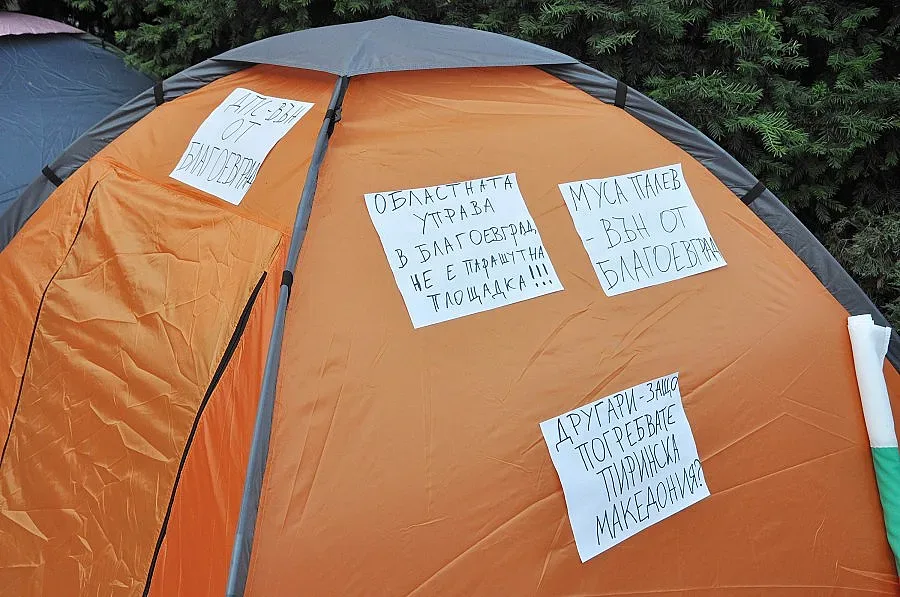 ДПС-ВЪН
ОТ
БЛАГОЕВГРАД
ОБЛАСТНАТА
УПРАВА
В БЛАГОЕВГРАД,
НЕ Е ПАРАШУТНА
ПЛОЩАДКА!!!
МУСА ПАЛЕВ
- ВЪН ОТ
БЛАГОЕВГРАД
ДРУГАРИ-ЗАЩО
ПОГРЕБВАТЕ
ПИРИНСКА
МАКЕДОНИЯ?